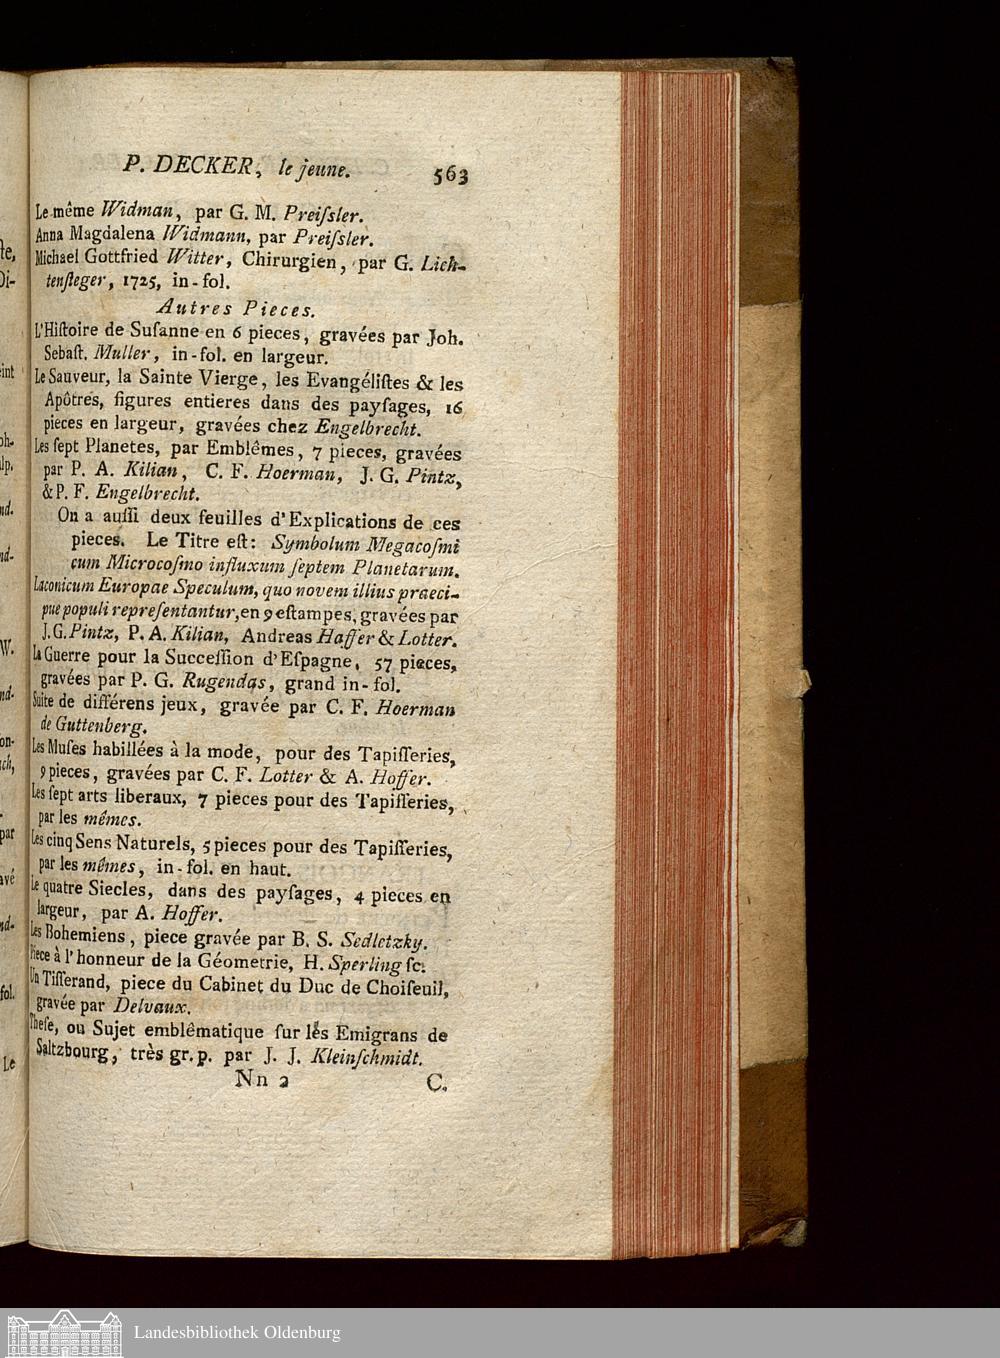 P. DECKER, le jeune. 563
Le même Widman, par G. M. Preiſsler.
Anna Magdalena Widmann, par Preiſsler.
Michael Gottfried Witter, Chirurgien, par G. Lich-
tenſteger, 1725, in-fol.
Autres Pieces.
L'Hiſtoire de Suſanne en 6 pieces, gravées par Joh.
Sebaſt. Muller, in-fol. en largeur.
Le Sauveur, la Sainte Vierge, les Evangéliſtes & les
Apôtres, figures entieres dans des payſages, 16
pieces en largeur, gravées chez Engelbrecht.
Les ſept Planetes, par Emblêmes, 7 pieces, gravées
par P. A. Kilian, C. F. Hoerman, J. G. Pintz,
& P. F. Engelbrecht.
On a auſſi deux feuilles d'Explications de ces
pieces. Le Titre eſt: Symbolum Megacoſmi
cum Microcoſmo influxum ſeptem Planetarum.
Laconicum Europae Speculum, quo novem illius praeci-
pue populi repreſentantur, en 9 eſtampes, gravées par
J. G. Pintz, P. A. Kilian, Andreas Haffer & Lotter.
La Guerre pour la Succeſſion d'Eſpagne, 57 pieces,
gravées par P. G. Rugendas, grand in-fol.
Suite de différens jeux, gravée par C. F. Hoerman
de Guttenberg.
Les Muſes habillées à la mode, pour des Tapiſſeries,
9 pieces, gravées par C. F. Lotter & A. Hoffer.
Les ſept arts liberaux, 7 pieces pour des Tapiſſeries,
par les mêmes.
Les cinq Sens Naturels, 5 pieces pour des Tapiſſeries,
par les mêmes, in-fol. en haut.
Le quatre Siecles, dans des payſages, 4 pieces en
largeur, par A. Hoffer.
Les Bohemiens, piece gravée par B. S. Sedletzky.
Piece à l'honneur de la Géometrie, H. Sperling ſc.
Un Tiſſerand, piece du Cabinet du Duc de Choiſeuil,
gravée par Delvaux.
Theſe, ou Sujet emblêmatique ſur les Emigrans de
Saltzbourg, très gr. p. par J. J. Kleinſchmidt.
Nn 2 C.
Landesbibliothek Oldenburg